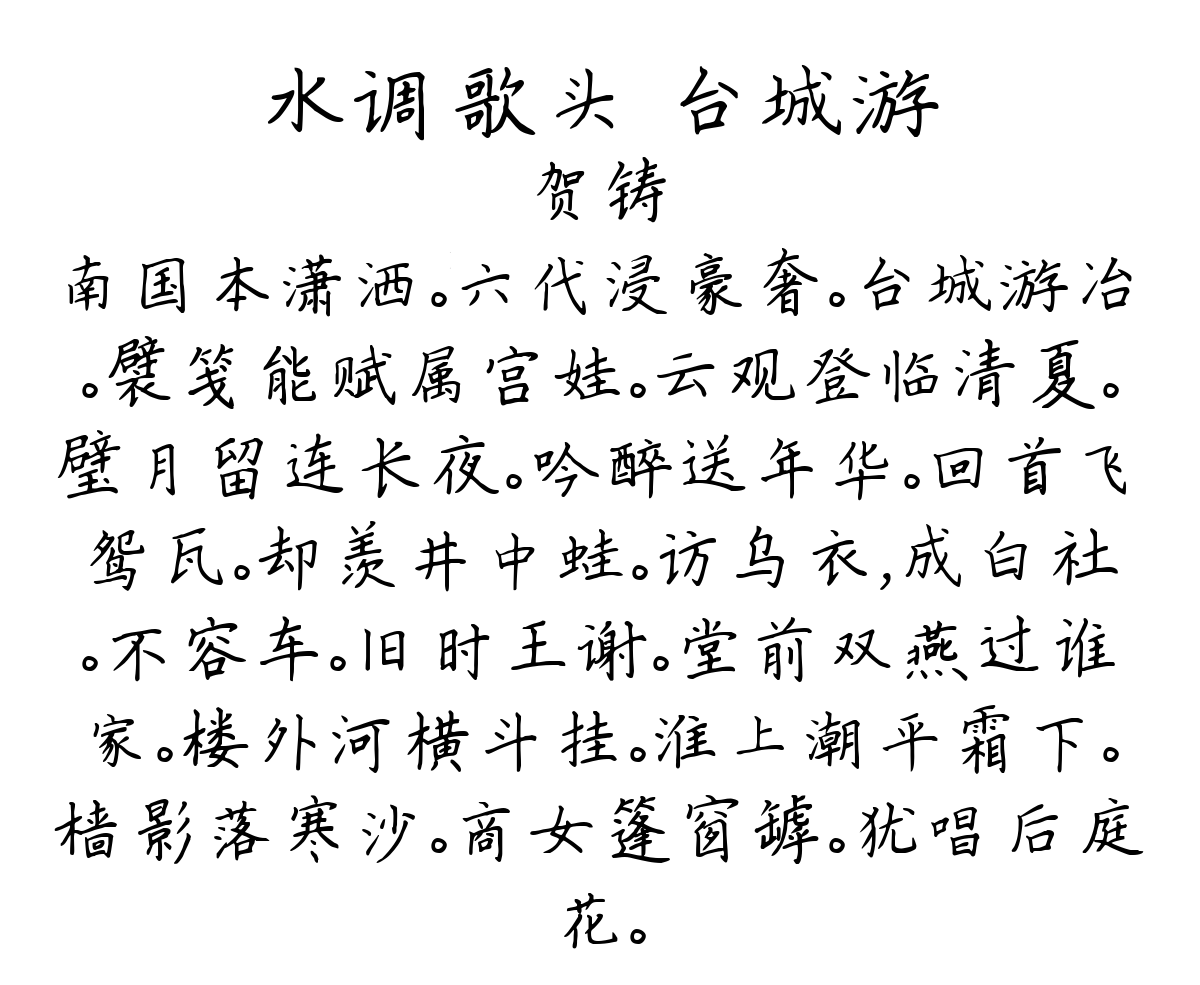 水调歌头 台城游
贺铸
南国本潇洒。六代浸豪奢。台城游冶
。襞笺能赋属宫娃。云观登临清夏。
璧月留连长夜。吟醉送年华。回首飞
鸳瓦。却羡井中蛙。访乌衣,成白社
。不容车。旧时王谢。堂前双燕过谁
家。楼外河横斗挂。淮上潮平霜下。
樯影落寒沙。商女篷窗罅。犹唱后庭
花。